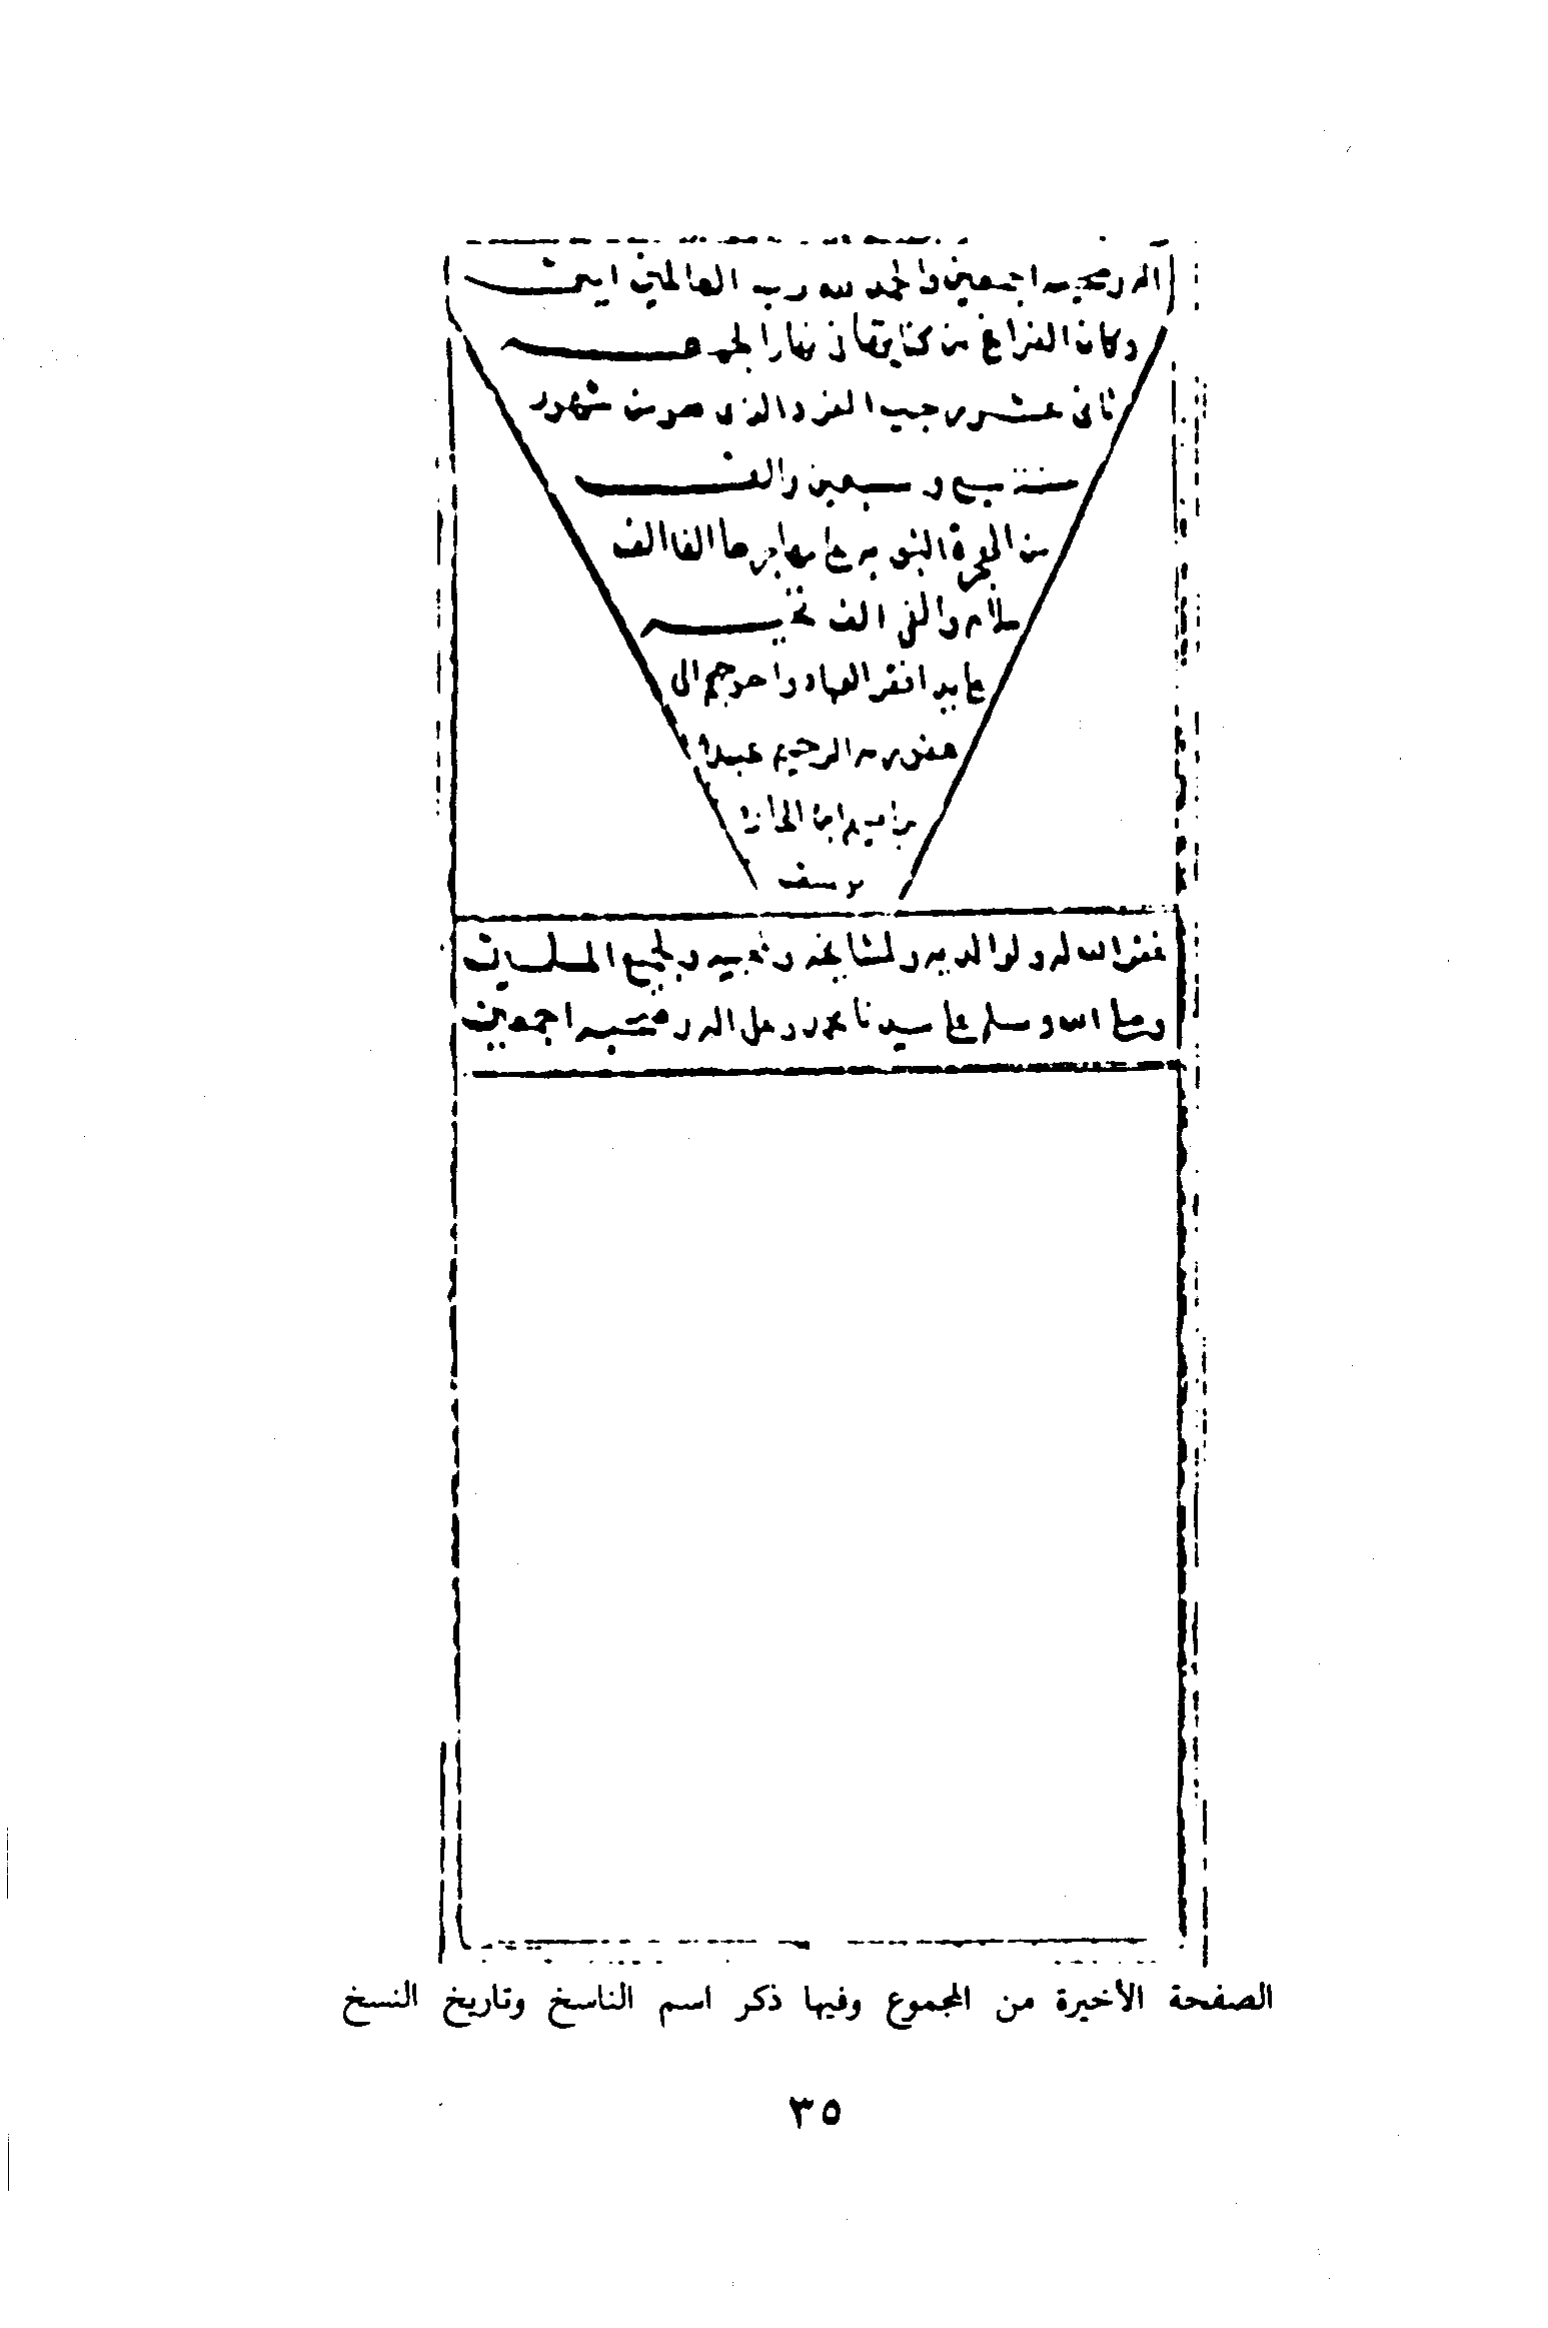 اله وصحبه اجمعين والحمد لله رب العالمين امين
وكان الفراغ من كتابتها في نهار الجمعه
ثاني عشر رجب الفرد الذي هو من شهور
سنة سبع وسبعين والف
من الهجرة النبويه على مهاجرها الفا الف
سلام والفي الف تحيه
على يد افقر العباد واحوجهم الى
عفو ربه الرحيم عبيد
ابراهيم ابن
يوسف
غفر الله له ولوالديه ولمشايخه ومحبيه ولجميع المسلمين
وصلى الله وسلم على سيدنا محمد وعلى اله وصحبه اجمعين
الصفحة الأخيرة من المجموع وفيها ذكر اسم الناسخ وتاريخ النسخ
٣٥